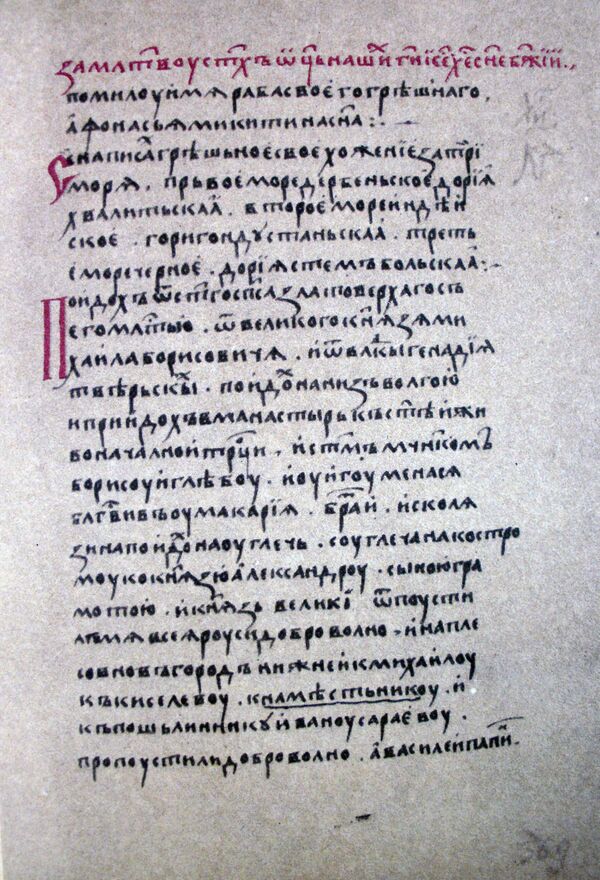 за млт҃воу ст҃хъ ѿц҃ь наши̾ ги҃ іс҃е х҃е сн҃е бж҃їй ..
помилоуй мя раба своего грѣшнаго .
афонасья микитина сн҃а :
написа грѣшьное свое хоженіе за три
моря . прьвое море дербеньское дорія
хвалитьскаа . второе море индѣй
ское . гори гондустаньскаа . треть
е море черное . дорія стемъбольскаа :
Поидохъ ѿ ст҃го спс҃а златоверхаго сь
его млт҃ью . ѿ великого кн҃язя ми
хаила борисовичя . и ѿ влдкы генадія
твѣрьскы . поидо на низъ волгою
и прийдохъ в манастырь къ ст҃ѣй жи
воначалной трци . и ст҃мъ мчнкомъ
борисоу и глѣбоу . и оу игоумена ся
блгвивъ оу макарія . братїи . и с коля
зина поидо на оуглечь . с оуглеча на костро
моу ко кн҃язю александроу . с ыною гра
мотою . и кн҃язь великі ѿпоусти
лъ мя всея роуси доброволно . и на пле
со в новъгородъ нижней к михаилоу
къ киселевоу . к намѣстьникоу . и
къ пошьлиннику иваноу сараевоу .
пропоустили доброволно . а василей папин .